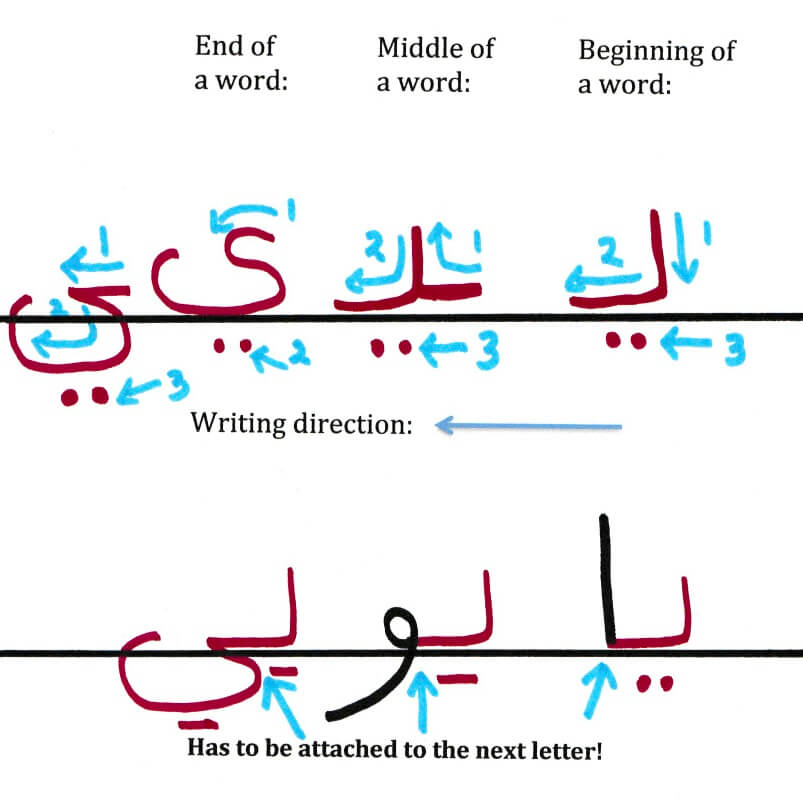 End of
a word:
Middle of
a word:
Beginning of
a word:
يـ 1 2 3
ـيـ 1 2 3
ي 1 2
ـي 1 2 3
Writing direction:
يا
يو
يي
Has to be attached to the next letter!